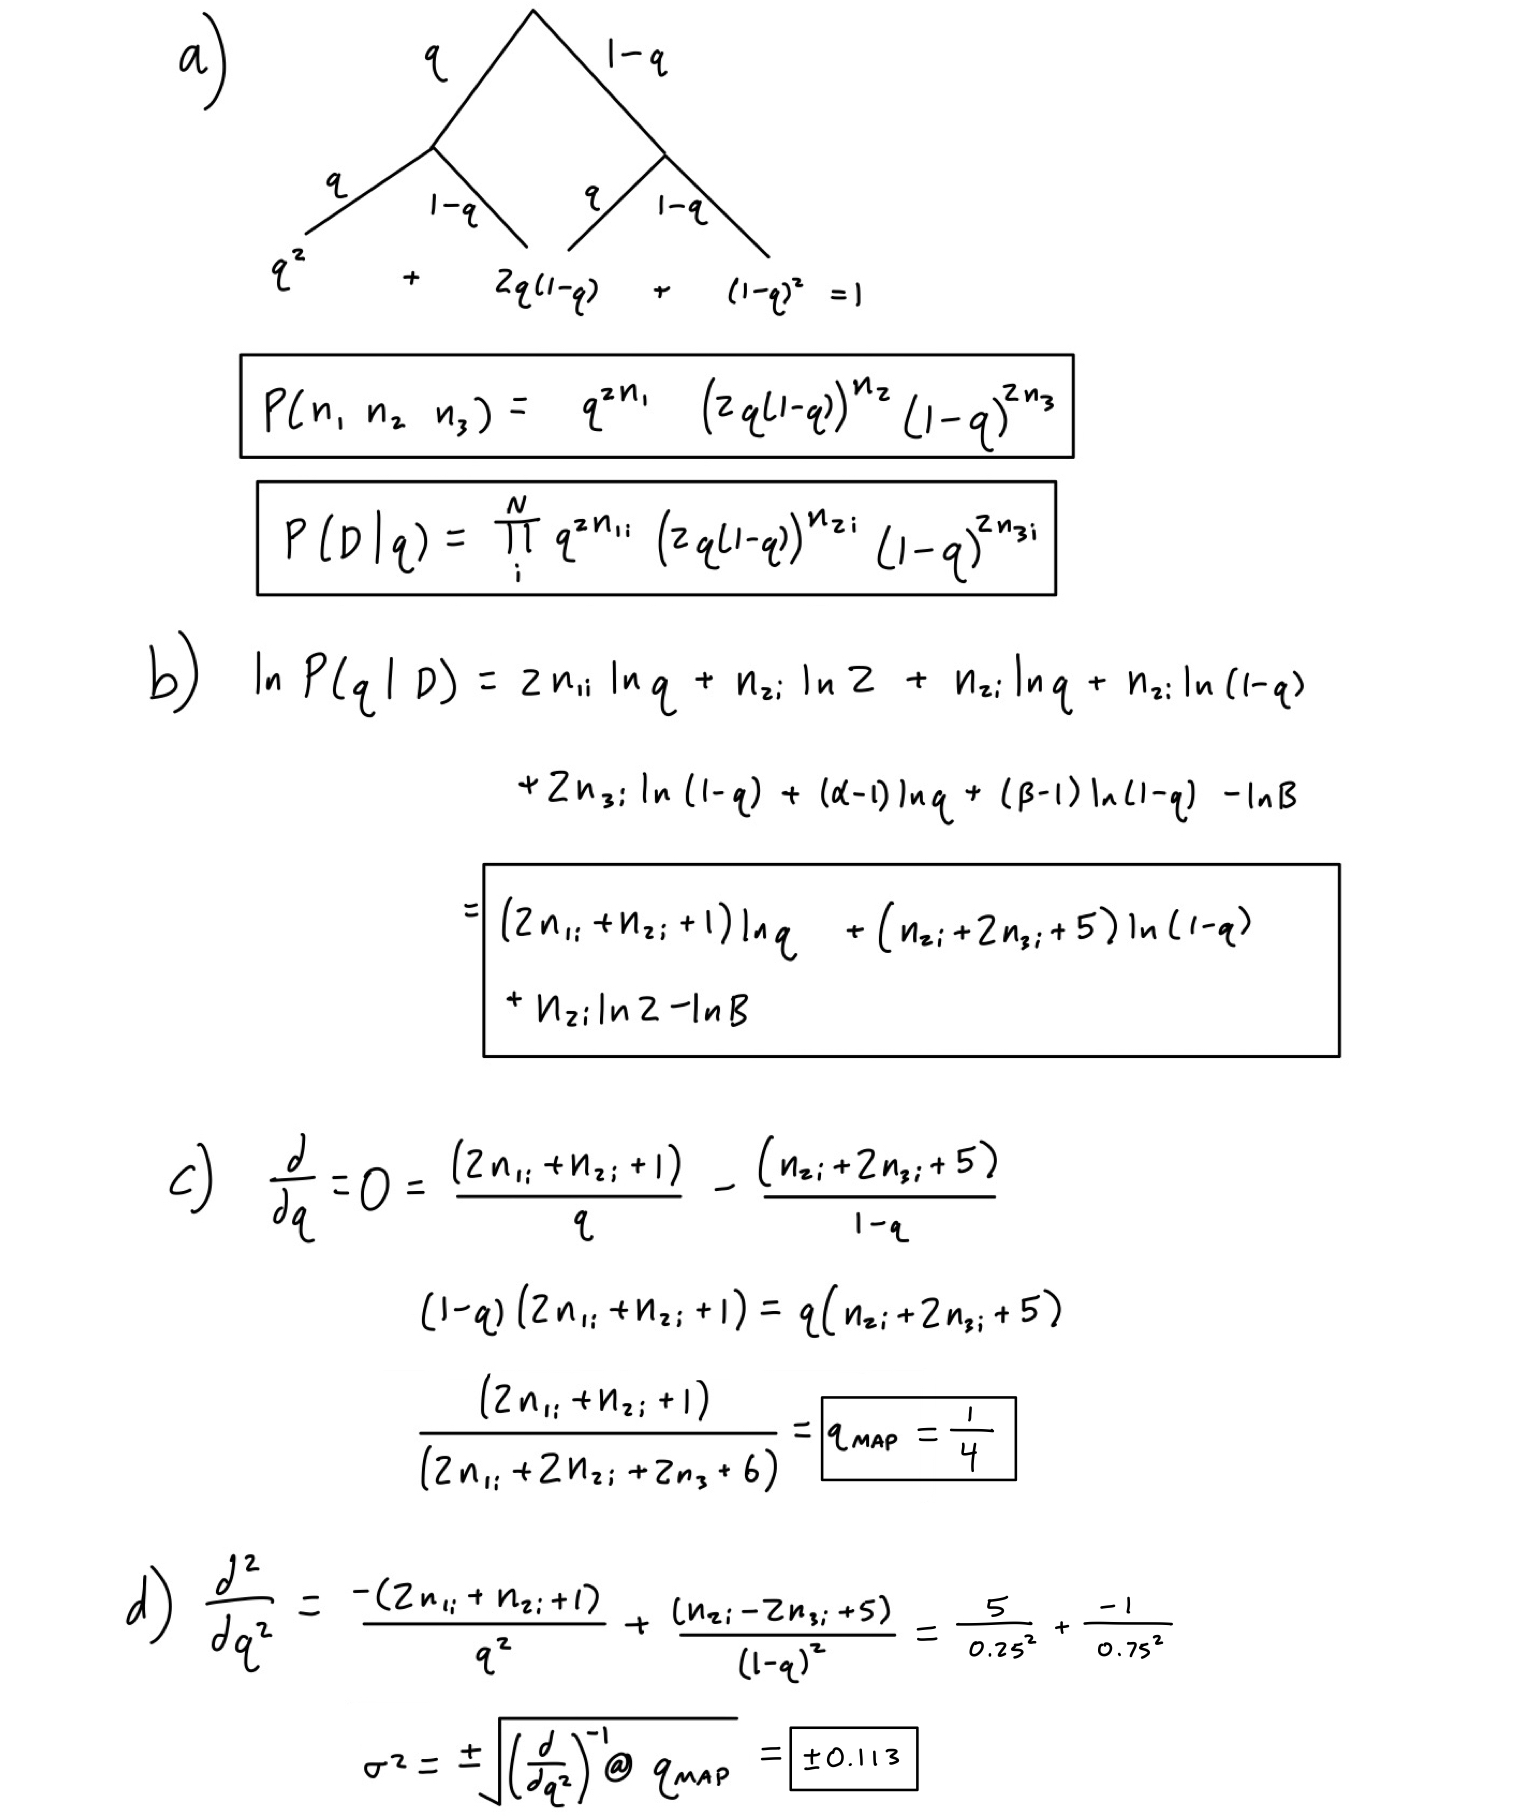 a)
q 1-q
q 1-q q 1-q
q² + 2q(1-q) + (1-q)² = 1
P(n₁ n₂ n₃) = q^{2n₁} (2q(1-q))^{n₂} (1-q)^{2n₃}
P(D|q) = ∏_{i}^{N} q^{2n₁ᵢ} (2q(1-q))^{n₂ᵢ} (1-q)^{2n₃ᵢ}
b) ln P(q|D) = 2n₁ᵢ ln q + n₂ᵢ ln 2 + n₂ᵢ ln q + n₂ᵢ ln(1-q)
+ 2n₃ᵢ ln(1-q) + (α-1) ln q + (β-1) ln(1-q) - ln B
= (2n₁ᵢ + n₂ᵢ + 1) ln q + (n₂ᵢ + 2n₃ᵢ + 5) ln(1-q)
+ n₂ᵢ ln 2 - ln B
c) d/dq = 0 = (2n₁ᵢ + n₂ᵢ + 1)/q - (n₂ᵢ + 2n₃ᵢ + 5)/1-q
(1-q)(2n₁ᵢ + n₂ᵢ + 1) = q(n₂ᵢ + 2n₃ᵢ + 5)
(2n₁ᵢ + n₂ᵢ + 1)/(2n₁ᵢ + 2n₂ᵢ + 2n₃ + 6) = q_MAP = 1/4
d) d²/dq² = -(2n₁ᵢ + n₂ᵢ + 1)/q² + (n₂ᵢ - 2n₃ᵢ + 5)/(1-q)² = 5/0.25² + -1/0.75²
σ² = ±√((d/dq²)⁻¹ @ q_MAP) = ±0.113